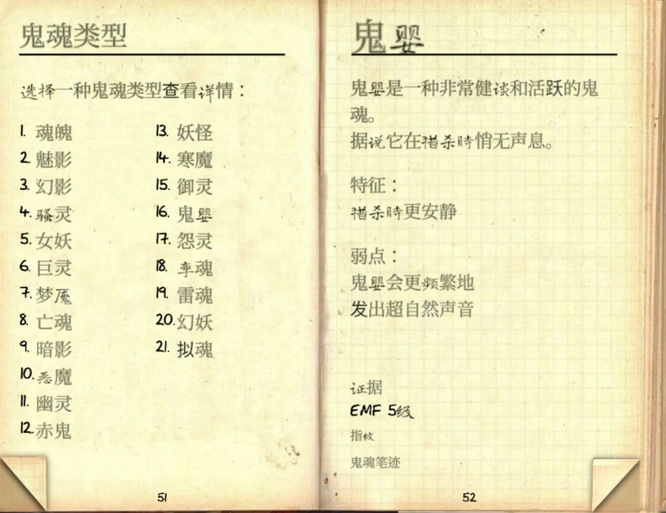 鬼魂类型
选择一种鬼魂类型查看详情：
1. 魂魄
2. 魅影
3. 幻影
4. 骚灵
5. 女妖
6. 巨灵
7. 梦魇
8. 亡魂
9. 暗影
10. 恶魔
11. 幽灵
12. 赤鬼
13. 妖怪
14. 寒魔
15. 御灵
16. 鬼婴
17. 怨灵
18. 孪魂
19. 雷魂
20. 幻妖
21. 拟魂
51
鬼婴
鬼婴是一种非常健谈和活跃的鬼
魂。
据说它在猎杀時悄无声息。
特征：
猎杀時更安静
弱点：
鬼婴会更频繁地
发出超自然声音
证据
EMF 5级
指纹
鬼魂笔迹
52